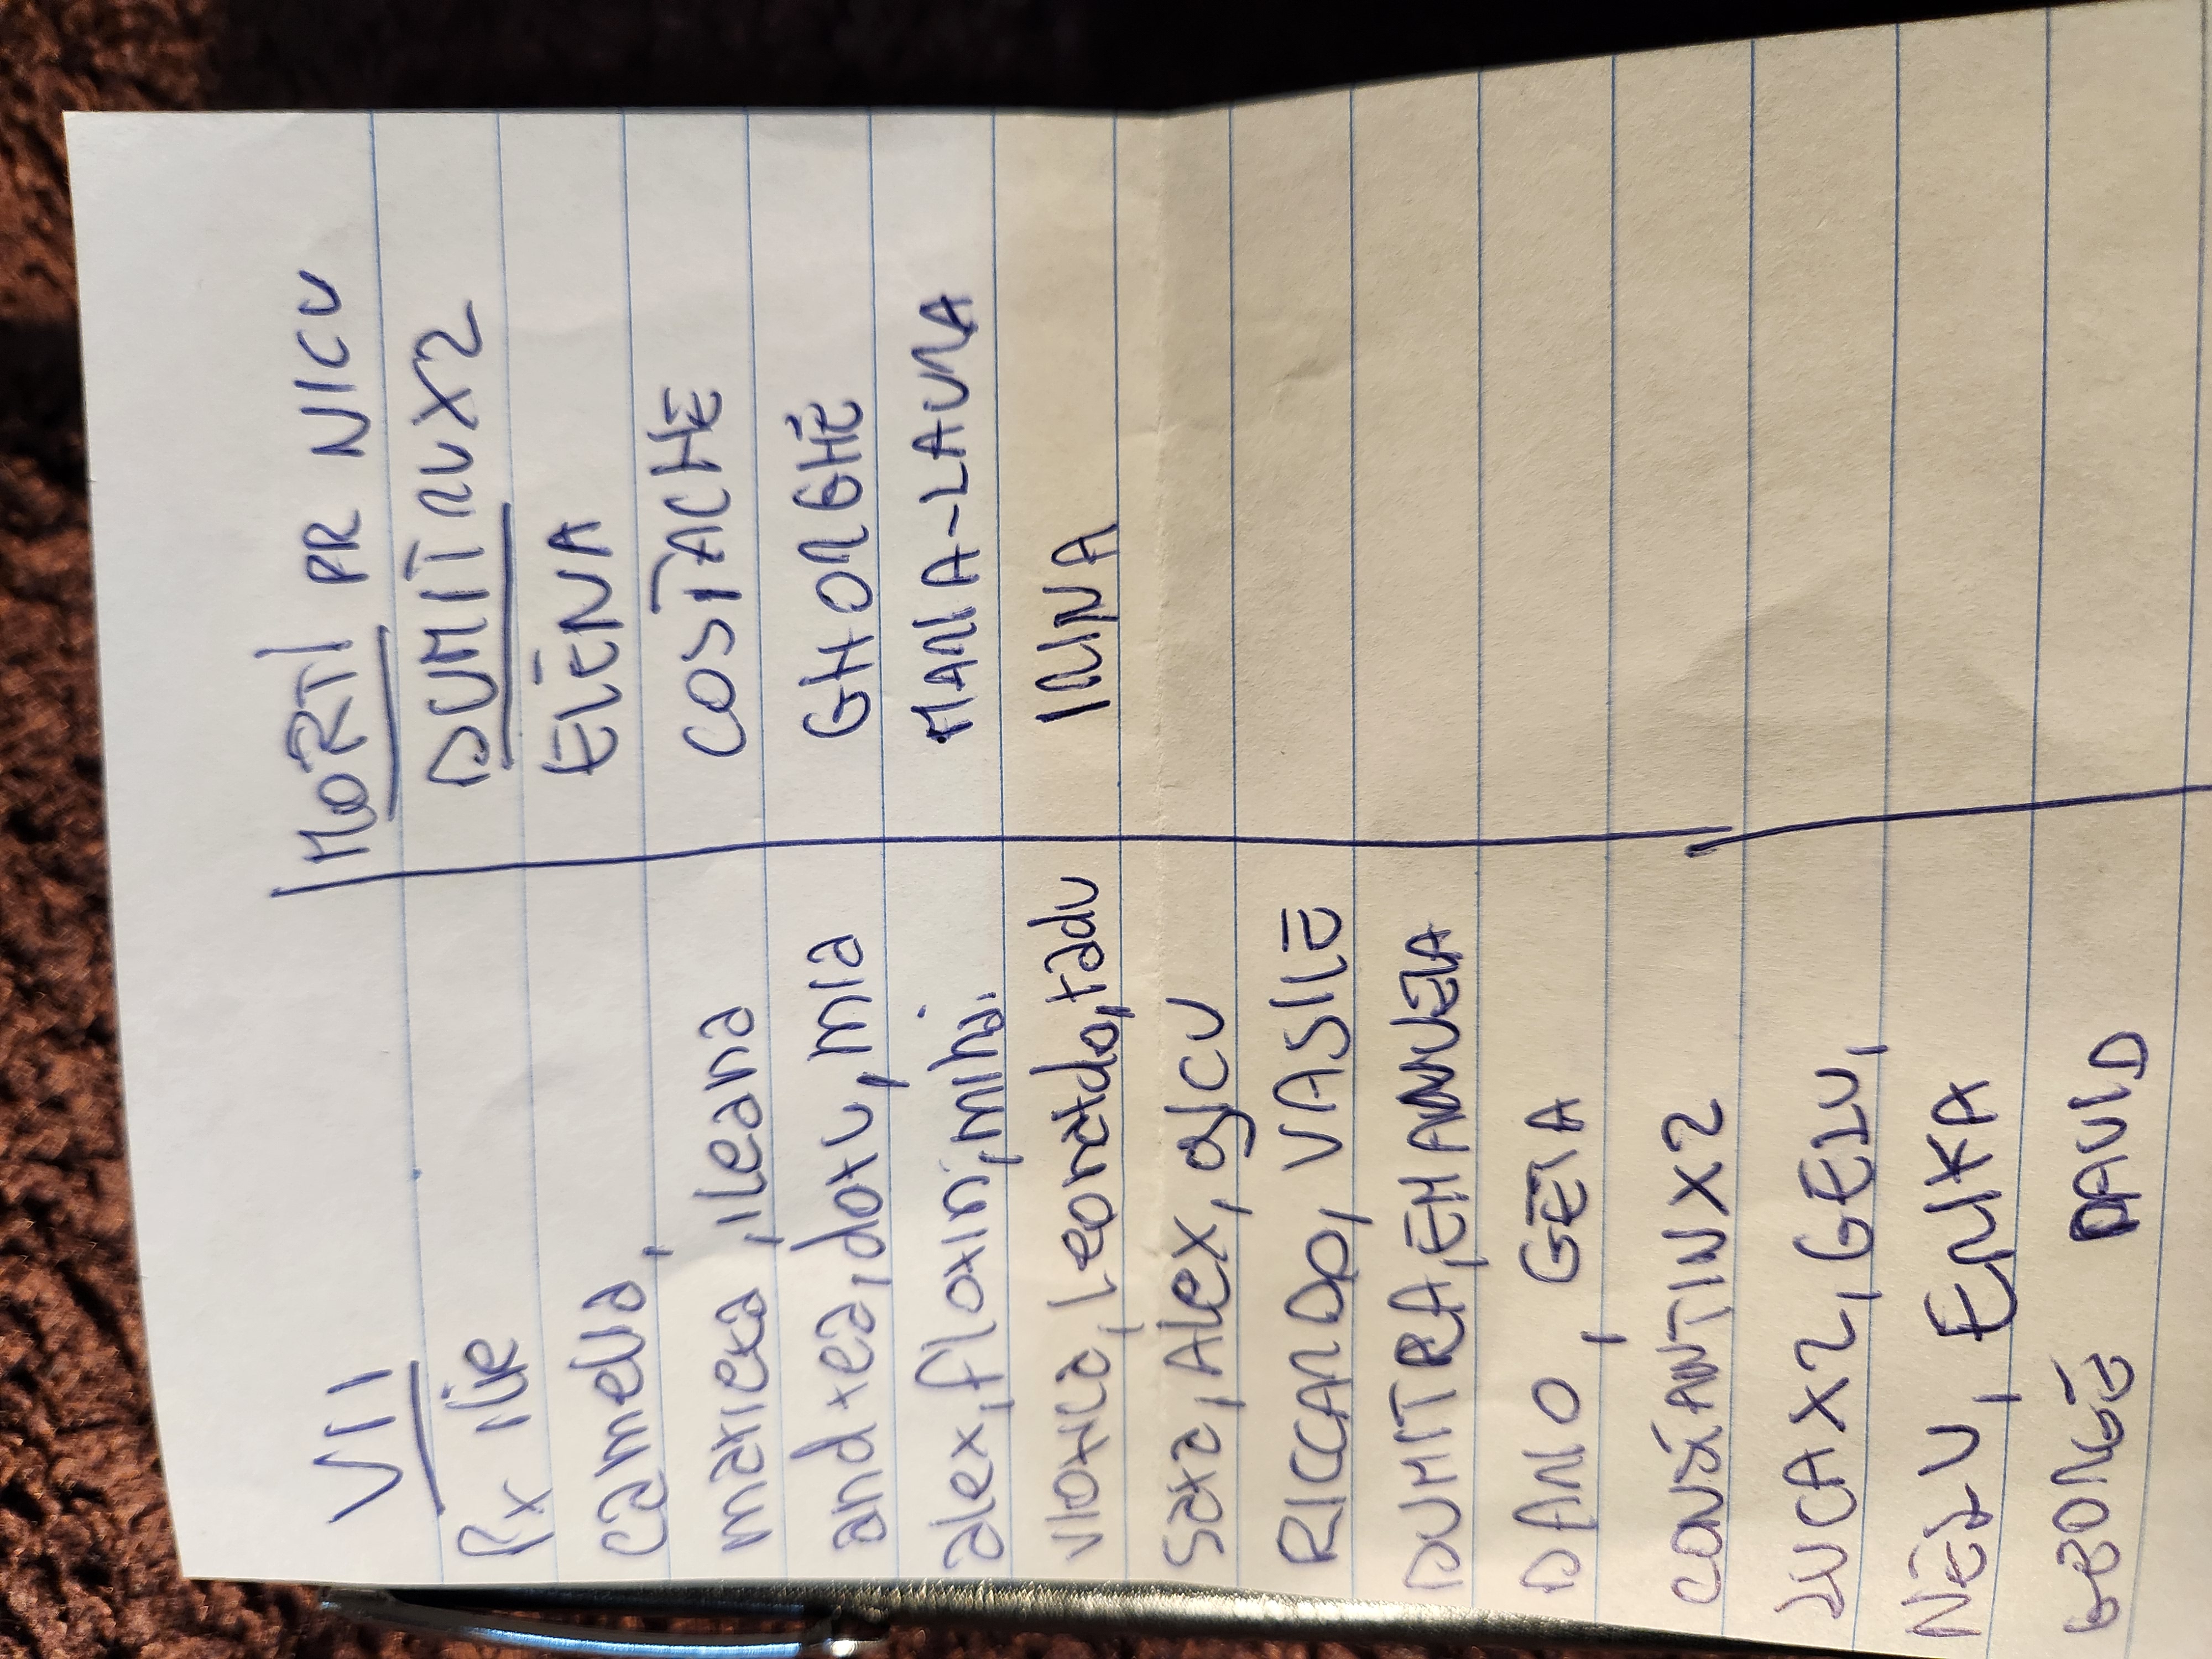 VII
Px ilie
camelia,
mariera, ileana
andrea, doru, mia
alex, florin, mihai
viorica, Leonardo, radu
Sara, Alex, gicu
RICCARDO, VASILE
DUMITRA, EMANUELA
DARIO, GETA
CONSTANTIN X2
LUCA X2, GELU,
NELU, ERIKA
GEORGE DAVID
MORTI PR NICU
DUMITRU X2
ELENA
COSTACHE
GHORGHE
MARIA-LAURA
IRINA